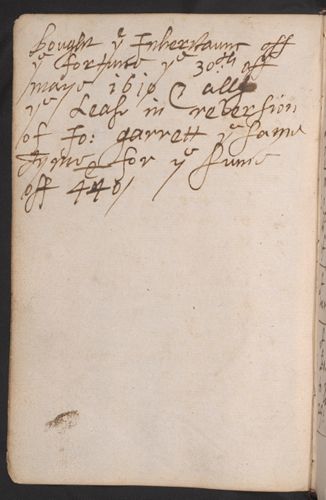 bought ye Inheritaunc off
ye fortune ye 30th off
maye 1610 & allso
ye Leasse in reversion
of Jo: garrett ye same
tyme for ye sume
off 440l